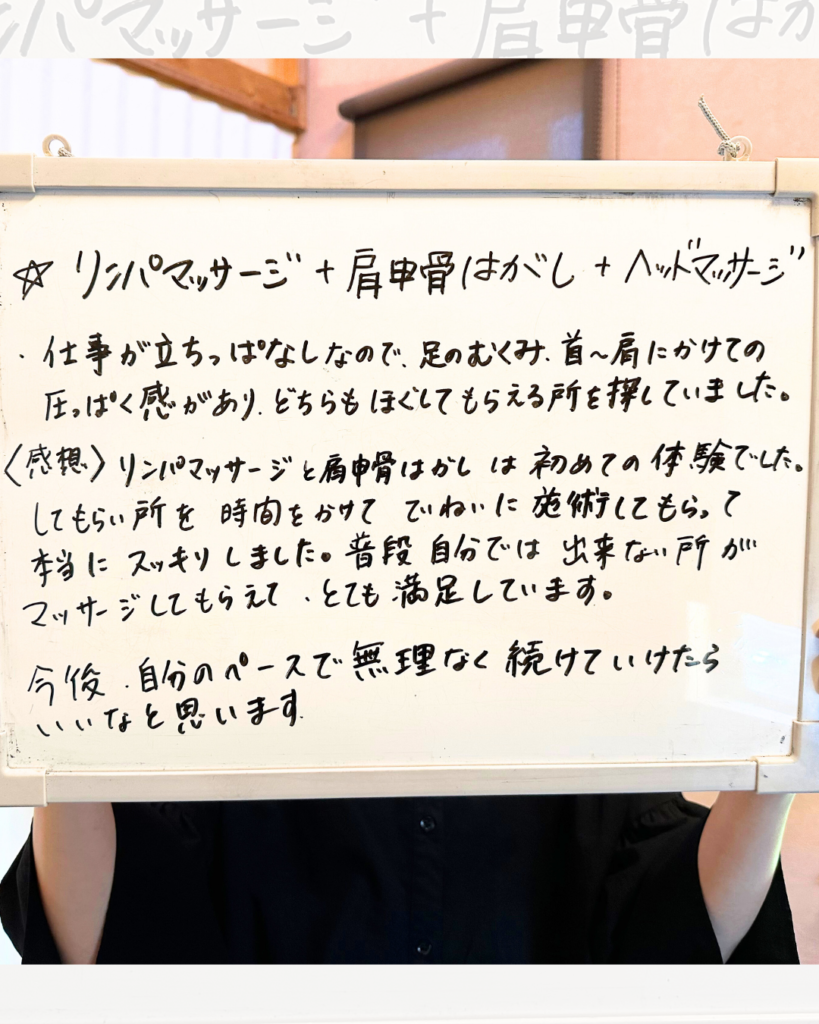 ンパマッサージ + 肩甲骨はが
☆ リンパマッサージ + 肩甲骨はがし + ヘッドマッサージ
・仕事が立ちっぱなしなので、足のむくみ、首〜肩にかけての
圧っぱく感があり、どちらもほぐしてもらえる所を探していました。
〈感想〉リンパマッサージと肩甲骨はがし は 初めての体験でした。
してもらい所を 時間をかけて ていねいに 施術してもらって
本当に スッキリしました。普段 自分では 出来ない所が
マッサージしてもらえて、とても 満足しています。
今後、自分のペースで無理なく続けていけたら
いいなと思います。